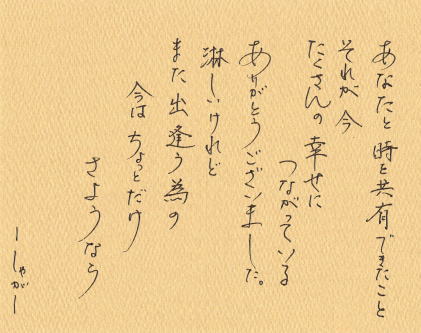 あなたと時を共有できたこと
それが今
たくさんの幸せに
つながっている
ありがとうございました。
淋しいけれど
また出逢う為の
今はちょっとだけ
さようなら
ーしゃがー